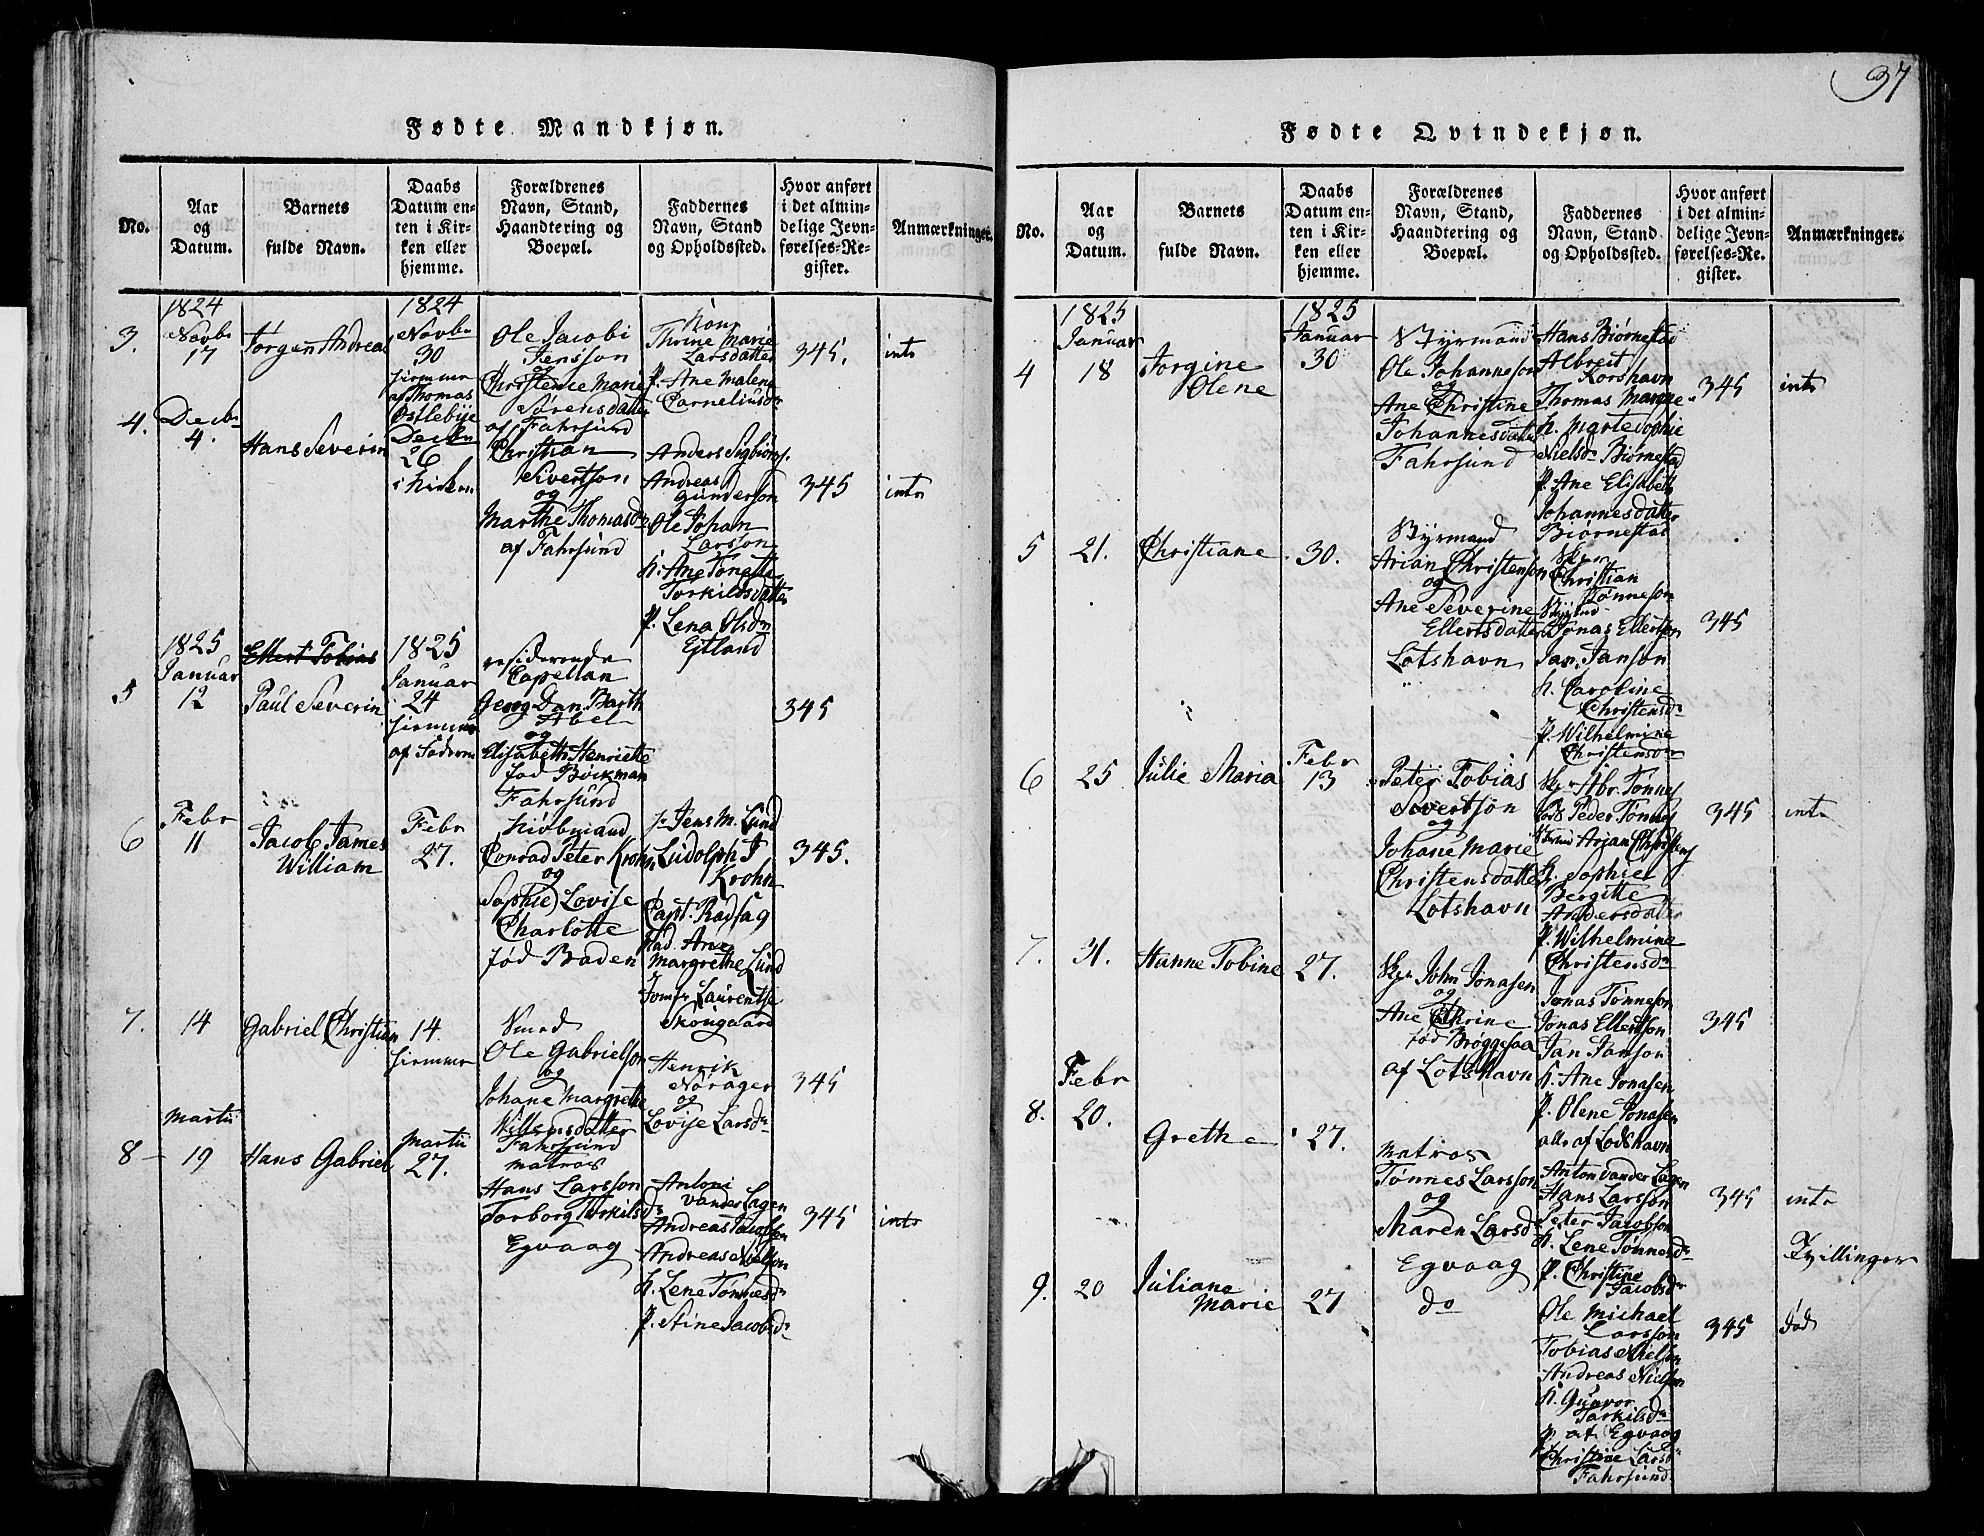 37
Fødte Mandkjøn.
No.
Aar
og
Datum.
Barnets
fulde Navn.
Daabs
Datum en-
ten i Kir-
ken eller
hjemme.
Forældrenes
Navn, Stand,
Haandtering og
Boepæl.
Faddernes
Navn, Stand
og Opholdssted.
Hvor anført
i det almin-
delige Jevn-
førelses-Re-
gister.
Anmærkninger.
3.
1824
Novbr
17
Torgen Andreas
1824
Novbr
30
hjemme
af Thomas
Østlebye
Ole Jacobi
Jensson
og
Christense Marie
Sørensdatter
af Fahrsund
Thrine Marie
Larsdatter
P. Ane Malene
Corneliusdr
345.
intr
4.
Decbr
4.
Hans Severin
Decbr
26
i kirken
Christian
Sivertson
og
Marthe Thomasdr
af Fahrsund
Anders Sigbiørns.
Andreas
Gunderson
Ole Johan
Larsson
K. Ane Tonette
Torkildsdatter
P. Lena Olsdr
Eitland
345
intr
5
1825
Januar
12
Ellert Tobias
Paul Severin
1825
Januar
24
hjemme
af Faderen
residerende
Capellan
Georg Dan. Barth
Abel
og
Elisabeth Henriette
fød Böckman
Fahrsund
345
6
Febr
11
Jacob James
William
Febr
27.
Kiøbmand
Conrad Peter Krohn
og
Sophie Lovise
Charlotte
fød Baden
Hr Jens M. Lund
Ludolph J
Krohn
Capt. Rødsag
Mad. Ane
Margrethe Lund
Jomfr Laurentse
Skougaard
345.
7.
14
Gabriel Christian
14.
hjemme
Smed
Ole Gabrielson
og
Johane Margrethe
Willumsdatter
Fahrsund
Henrik
Nørager
og
Lovise Larsdr
345
8
Martii
19
Hans Gabriel
Martii
27.
Matros
Hans Larsson
Torborg Torkilsdr
Egvaag
Antoni
vander Lagen
Andreas Jacobson
Andreas Nielson
K. Lene Tønnesdr
P. Stine Jacobsdr
345
intr
Fødte Qvindekjøn.
No.
Aar
og
Datum.
Barnets
fulde Navn.
Daabs
Datum en-
ten i Kir-
ken eller
hjemme.
Forældrenes
Navn, Stand,
Haandtering og
Boepæl.
Faddernes
Navn, Stand
og Opholdssted.
Hvor anført
i det almin-
delige Jevn-
førelses-Re-
gister.
Anmærkninger.
4
1825
Januar
18
Torgine
Olene
1825
Januar
30
Styrmand
Ole Johanneson
og
Ane Christine
Johannesdatter
Fahrsund
Hans Biørnestad
Albreit
Korshavn
Thomas Mange
K. Marte Sophie
Nielsdr Biørnestad
P. Ane Elisabeth
Johannesdatter
Biørnestad
345
intr
5
21.
Christiane
30.
Styrmand
Arian Christenson
og
Ane Severine
Ellertsdatter
Lotshavn
Christian
Tønneson
Jonas Ellertson
Jan Janson
K. Caroline
Christensdr
P. Wilhelmine
Christensdr
345
6
25
Julie Maria
Febr
13
Peter Tobias
Sivertson
og
Johane Marie
Christensdatter
Lotshavn
Skpr Abr. Tønnes
Lods Peder Tønnes
Arjan Christens
K. Sophie
Bergitte
Andersdatter
P. Wilhelmine
Christensdr
345
intr
7.
31.
Hanne Tobine
27.
Skpr John Jonasen
og
Ane Cathrine
fød Brøggesaa
af Lotshavn
Jonas Tønneson
Jonas Ellertson
Jan Janson
K. Ane Jonasen
P. Olene Jonasen
alle af Lodshavn
345
8.
Febr
20.
Grethe
27.
Matros
Tønnes Larsson
og
Maren Larsdr
Egvaag
Anton vander Lagen
Hans Larsson
Peter Jacobson
K. Lene Tønnesdr
P. Christine
Jacobsdr
345
intr
Tvillinger
9.
20
Juliane
Marie
27
do
Ole Michael
Larsson
Tobias Nielson
Andreas Nielson
K. Gunvor
Tarkilsdr
af Egvaag
P. Christine Larsdr
Fahrsund
345
død